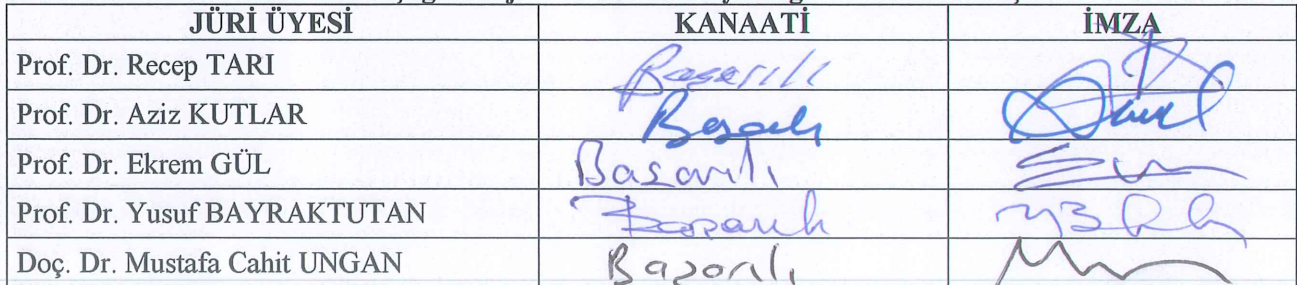 JÜRİ ÜYESİ KANAATİ İMZA
Prof. Dr. Recep TARI Başarılı
Prof. Dr. Aziz KUTLAR Başarılı
Prof. Dr. Ekrem GÜL Başarılı
Prof. Dr. Yusuf BAYRAKTUTAN Başarılı
Doç. Dr. Mustafa Cahit UNGAN Başarılı